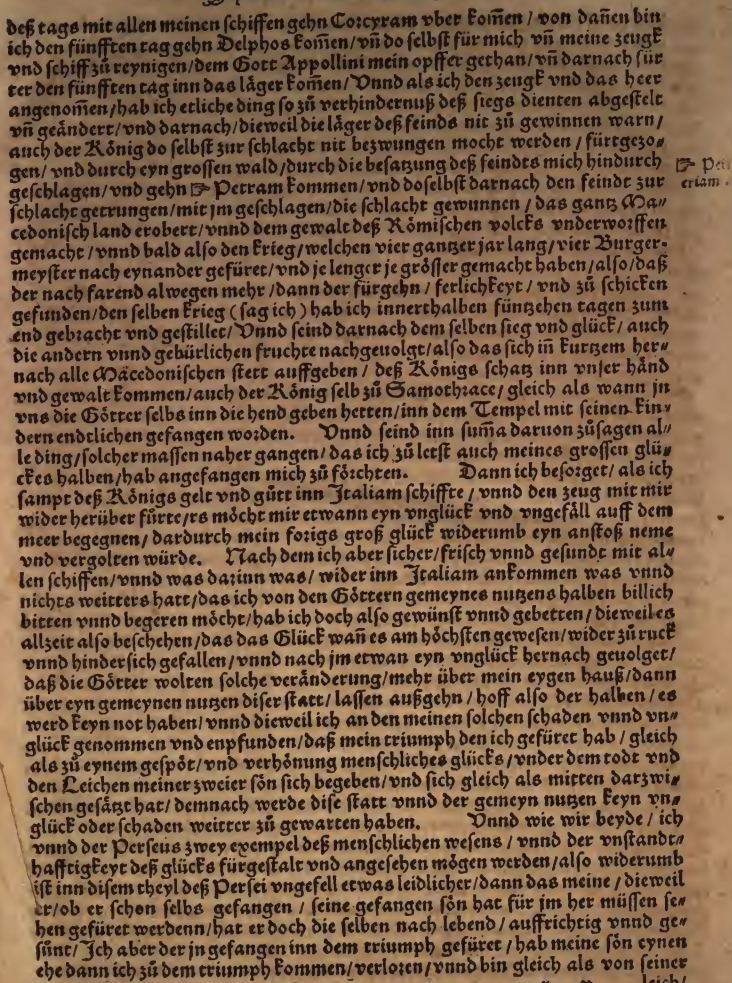 deß tags mit allen meinen schiffen gehn Corcyram vber kom̄en / von dañen bin
ich den fünfften tag gehn Delphos kom̄en/vñ do selbst für mich vñ meine zeugk
vnd schiff zů reynigen/dem Gott Appollini mein opffer gethan/vñ darnach für
ter den fünfften tag inn das läger kom̄en/Vnnd als ich den zeugk vnd das heer
angenom̄en/hab ich etliche ding so zů verhindernuß deß siegs dienten abgestelt
vñ geändert/vnd darnach/dieweil die läger deß feinds nit zů gewinnen warn/
auch der König do selbst zur schlacht nit bezwungen mocht werden / fürtgezo⸗
gen/vnd durch eyn grossen wald/durch die besatzung deß feindts mich hindurch
geschlagen/vnd gehn ☞ Petram kommen/vnd doselbst darnach den feindt zur
schlacht getrungen/mit jm geschlagen/die schlacht gewunnen / das gantz Ma⸗
cedonisch land erobert/vnnd dem gewalt deß Römischen volcks vnderworffen
gemacht/vnnd bald also den krieg/welchen vier gantzer jar lang/vier Burger⸗
meyster nach eynander gefüret/vnd je lenger je grösser gemacht haben/also/daß
der nach farend alwegen mehr /dann der fürgehn / ferlichkeyt / vnd zů schicken
gefunden/den selben krieg (sag ich) hab ich innerthalben füntzehen tagen zum
end gebracht vnd gestillet/Vnnd seind darnach dem selben sieg vnd glück/ auch
die andern vnnd gebürlichen fruchte nachgeuolgt/also das sich iñ kurtzem her⸗
nach alle Mäcedonischen stett auffgeben / deß Königs schatz inn vnser händ
vnd gewalt kommen/auch der König selb zů Samothrace/ gleich als wann jn
vns die Götter selbs inn die hend geben hetten/inn dem Tempel mit seinen kin⸗
dern endtlichen gefangen worden. Vnnd seind inn sum̄a daruon zůsagen al⸗
le ding/solcher massen naher gangen/das ich zů letst auch meines grossen glü⸗
ckes halben/hab angefangen mich zů förchten. Dann ich besorget/ als ich
sampt deß Königs gelt vnd gůtt inn Italiam schiffte / vnnd den zeug mit mir
wider herüber fürte/es möcht mir etwann eyn vnglück vnd vngefäll auff dem
meer begegnen/ dardurch mein forigs groß glück widerumb eyn anstoß neme
vnd vergolten würde. Nach dem ich aber sicher/frisch vnnd gesundt mit al⸗
len schiffen/vnnd was darinn was/ wider inn Italiam ankommen was vnnd
nichts weitters hatt/das ich von den Göttern gemeynes nutzens halben billich
bitten vnnd begeren möcht/hab ich doch also gewünst vnnd gebetten / dieweil es
allzeit also beschehen/das das Glück wañ es am höchsten gewesen/wider zů ruck
vnnd hindersich gefallen/vnnd nach jm etwan eyn vnglück hernach geuolget/
daß die Götter wolten solche veränderung/mehr über mein eygen hauß/dann
über eyn gemeynen nutzen diser statt/ lassen außgehn / hoff also der halben / es
werd keyn not haben/ vnnd dieweil ich an den meinen solchen schaden vnnd vn⸗
glück genommen vnd enpfunden/daß mein triumph den ich gefüret hab / gleich
als zů eynem gespöt/vnd verhönung menschliches glücks/vnder dem todt vnd
den Leichen meiner zweier sön sich begeben/vnd sich gleich als mitten darzwi⸗
schen gesätzt hat/demnach werde dise statt vnnd der gemeyn nutzen keyn vn⸗
glück oder schaden weitter zů gewarten haben. Vnnd wie wir beyde / ich
vnnd der Perseus zwey exempel deß menschlichen wesens / vnnd der vnstandt⸗
hafftigkeyt deß glücks fürgestalt vnd angesehen mögen werden/also widerumb
ist inn disem theyl deß Persei vngefell etwas leidlicher/dann das meine / dieweil
er/ob er schon selbs gefangen / seine gefangen sön hat für jm her müssen se⸗
hen gefüret werdenn/hat er doch die selben nach lebend/ auffrichtig vnnd ge⸗
sünt/ Ich aber der jn gefangen inn dem triumph gefüret / hab meine sön eynen
ehe dann ich zů dem triumph kommen/verloren/vnnd bin gleich als von seiner